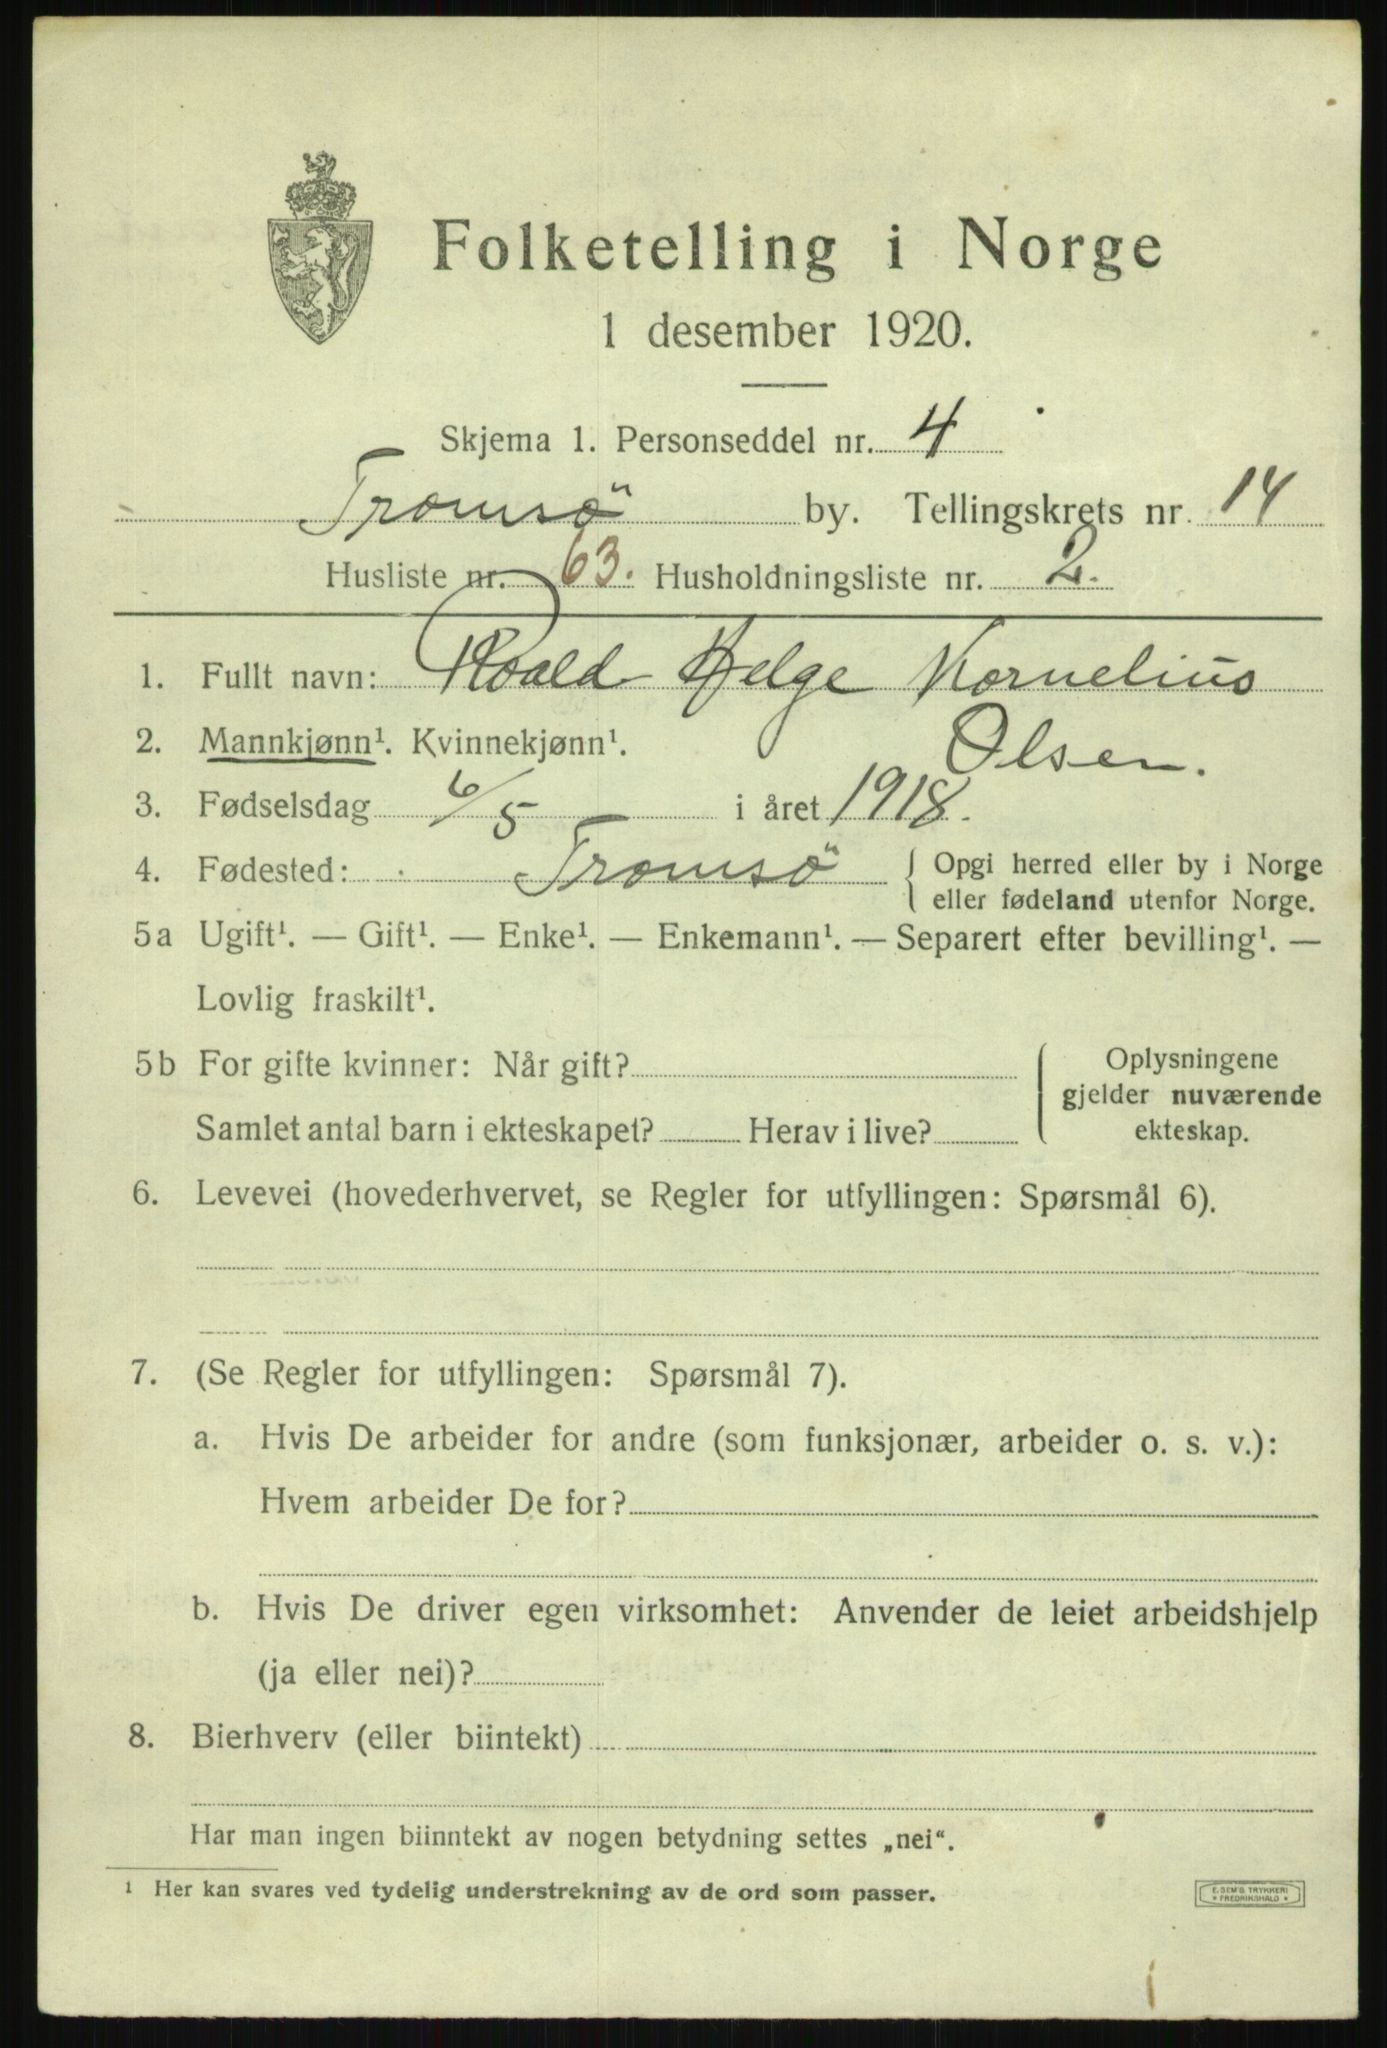 Folketelling i Norge
1 desember 1920.
Skjema 1. Personseddel nr. 4
Tromsö by. Tellingskrets nr. 14
Husliste nr. 63. Husholdningsliste nr. 2.
1. Fullt navn: Roald Helge Kornelius
Olsen.
2. Mannkjønn¹. Kvinnekjønn¹.
3. Fødselsdag 6/5 i året 1918.
4. Fødested: Tromsö { Opgi herred eller by i Norge
eller fødeland utenfor Norge.
5a Ugift¹. — Gift¹. — Enke¹. — Enkemann¹. — Separert efter bevilling¹. —
Lovlig fraskilt¹.
5b For gifte kvinner: Når gift?
Samlet antal barn i ekteskapet? Herav i live?
Oplysningene
gjelder nuværende
ekteskap.
6. Levevei (hovederhvervet, se Regler for utfyllingen: Spørsmål 6).
7. (Se Regler for utfyllingen: Spørsmål 7).
a. Hvis De arbeider for andre (som funksjonær, arbeider o. s. v.):
Hvem arbeider De for?
b. Hvis De driver egen virksomhet: Anvender de leiet arbeidshjelp
(ja eller nei)?
8. Bierhverv (eller biintekt)
Har man ingen biinntekt av nogen betydning settes „nei“.
¹ Her kan svares ved tydelig understrekning av de ord som passer.
E. SEM'S TRYKKERI
* FREDRIKSHALD *